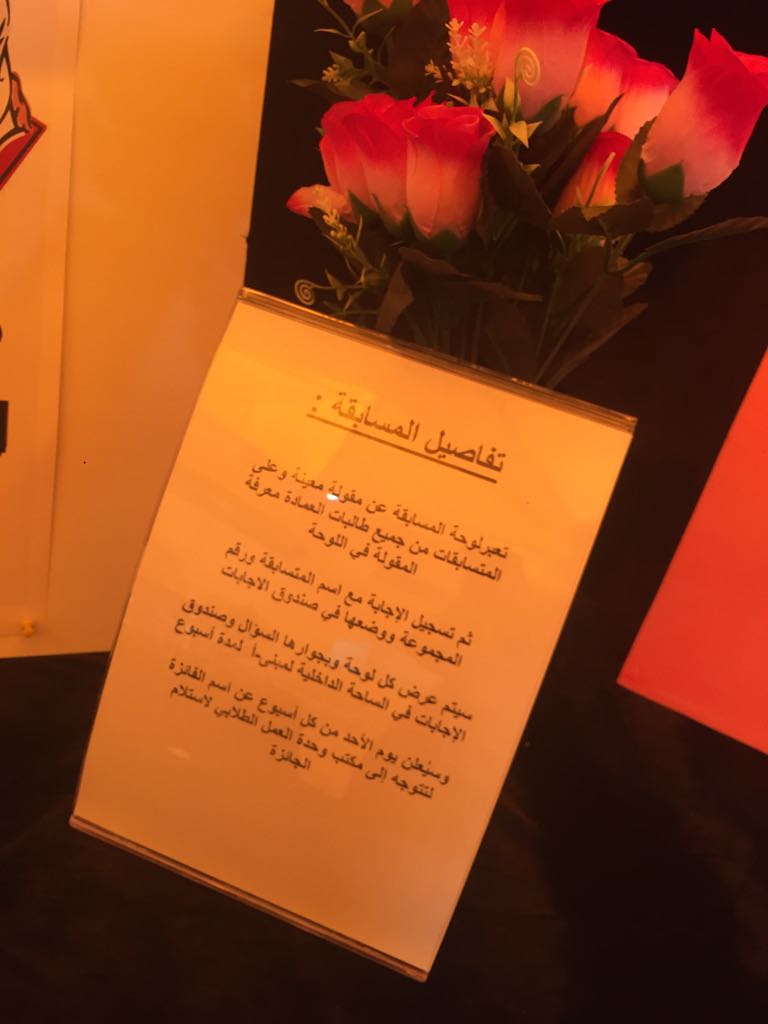 تفاصيل المسابقة :
تعبرلوحة المسابقة عن مقولة معينة وعلى
المتسابقات من جميع طالبات العمادة معرفة
المقولة في اللوحة
ثم تسجيل الإجابة مع اسم المتسابقة ورقم
المجموعة ووضعها في صندوق الاجابات
سيتم عرض كل لوحة وبجوارها السؤال وصندوق
الإجابات في الساحة الداخلية لمبنى-أ لمدة أسبوع
وسيُعلن يوم الأحد من كل أسبوع عن اسم الفائزة
لتتوجه إلى مكتب وحدة العمل الطلابي لاستلام
الجائزة